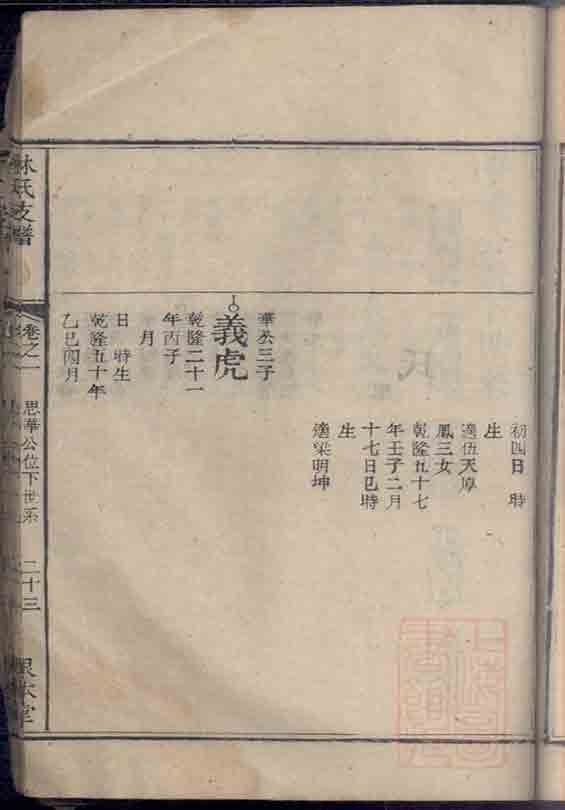 初四日 時
生
適伍天厚
鳳三女
乾隆五十七
年壬子二月
十七日巳時
生
適梁明坤
華公三子
義虎
乾隆二十一
年丙子
月
日 時生
乾隆五十年
乙巳四月
林氏支譜
卷之一
思華公位下世系
二十三
氏